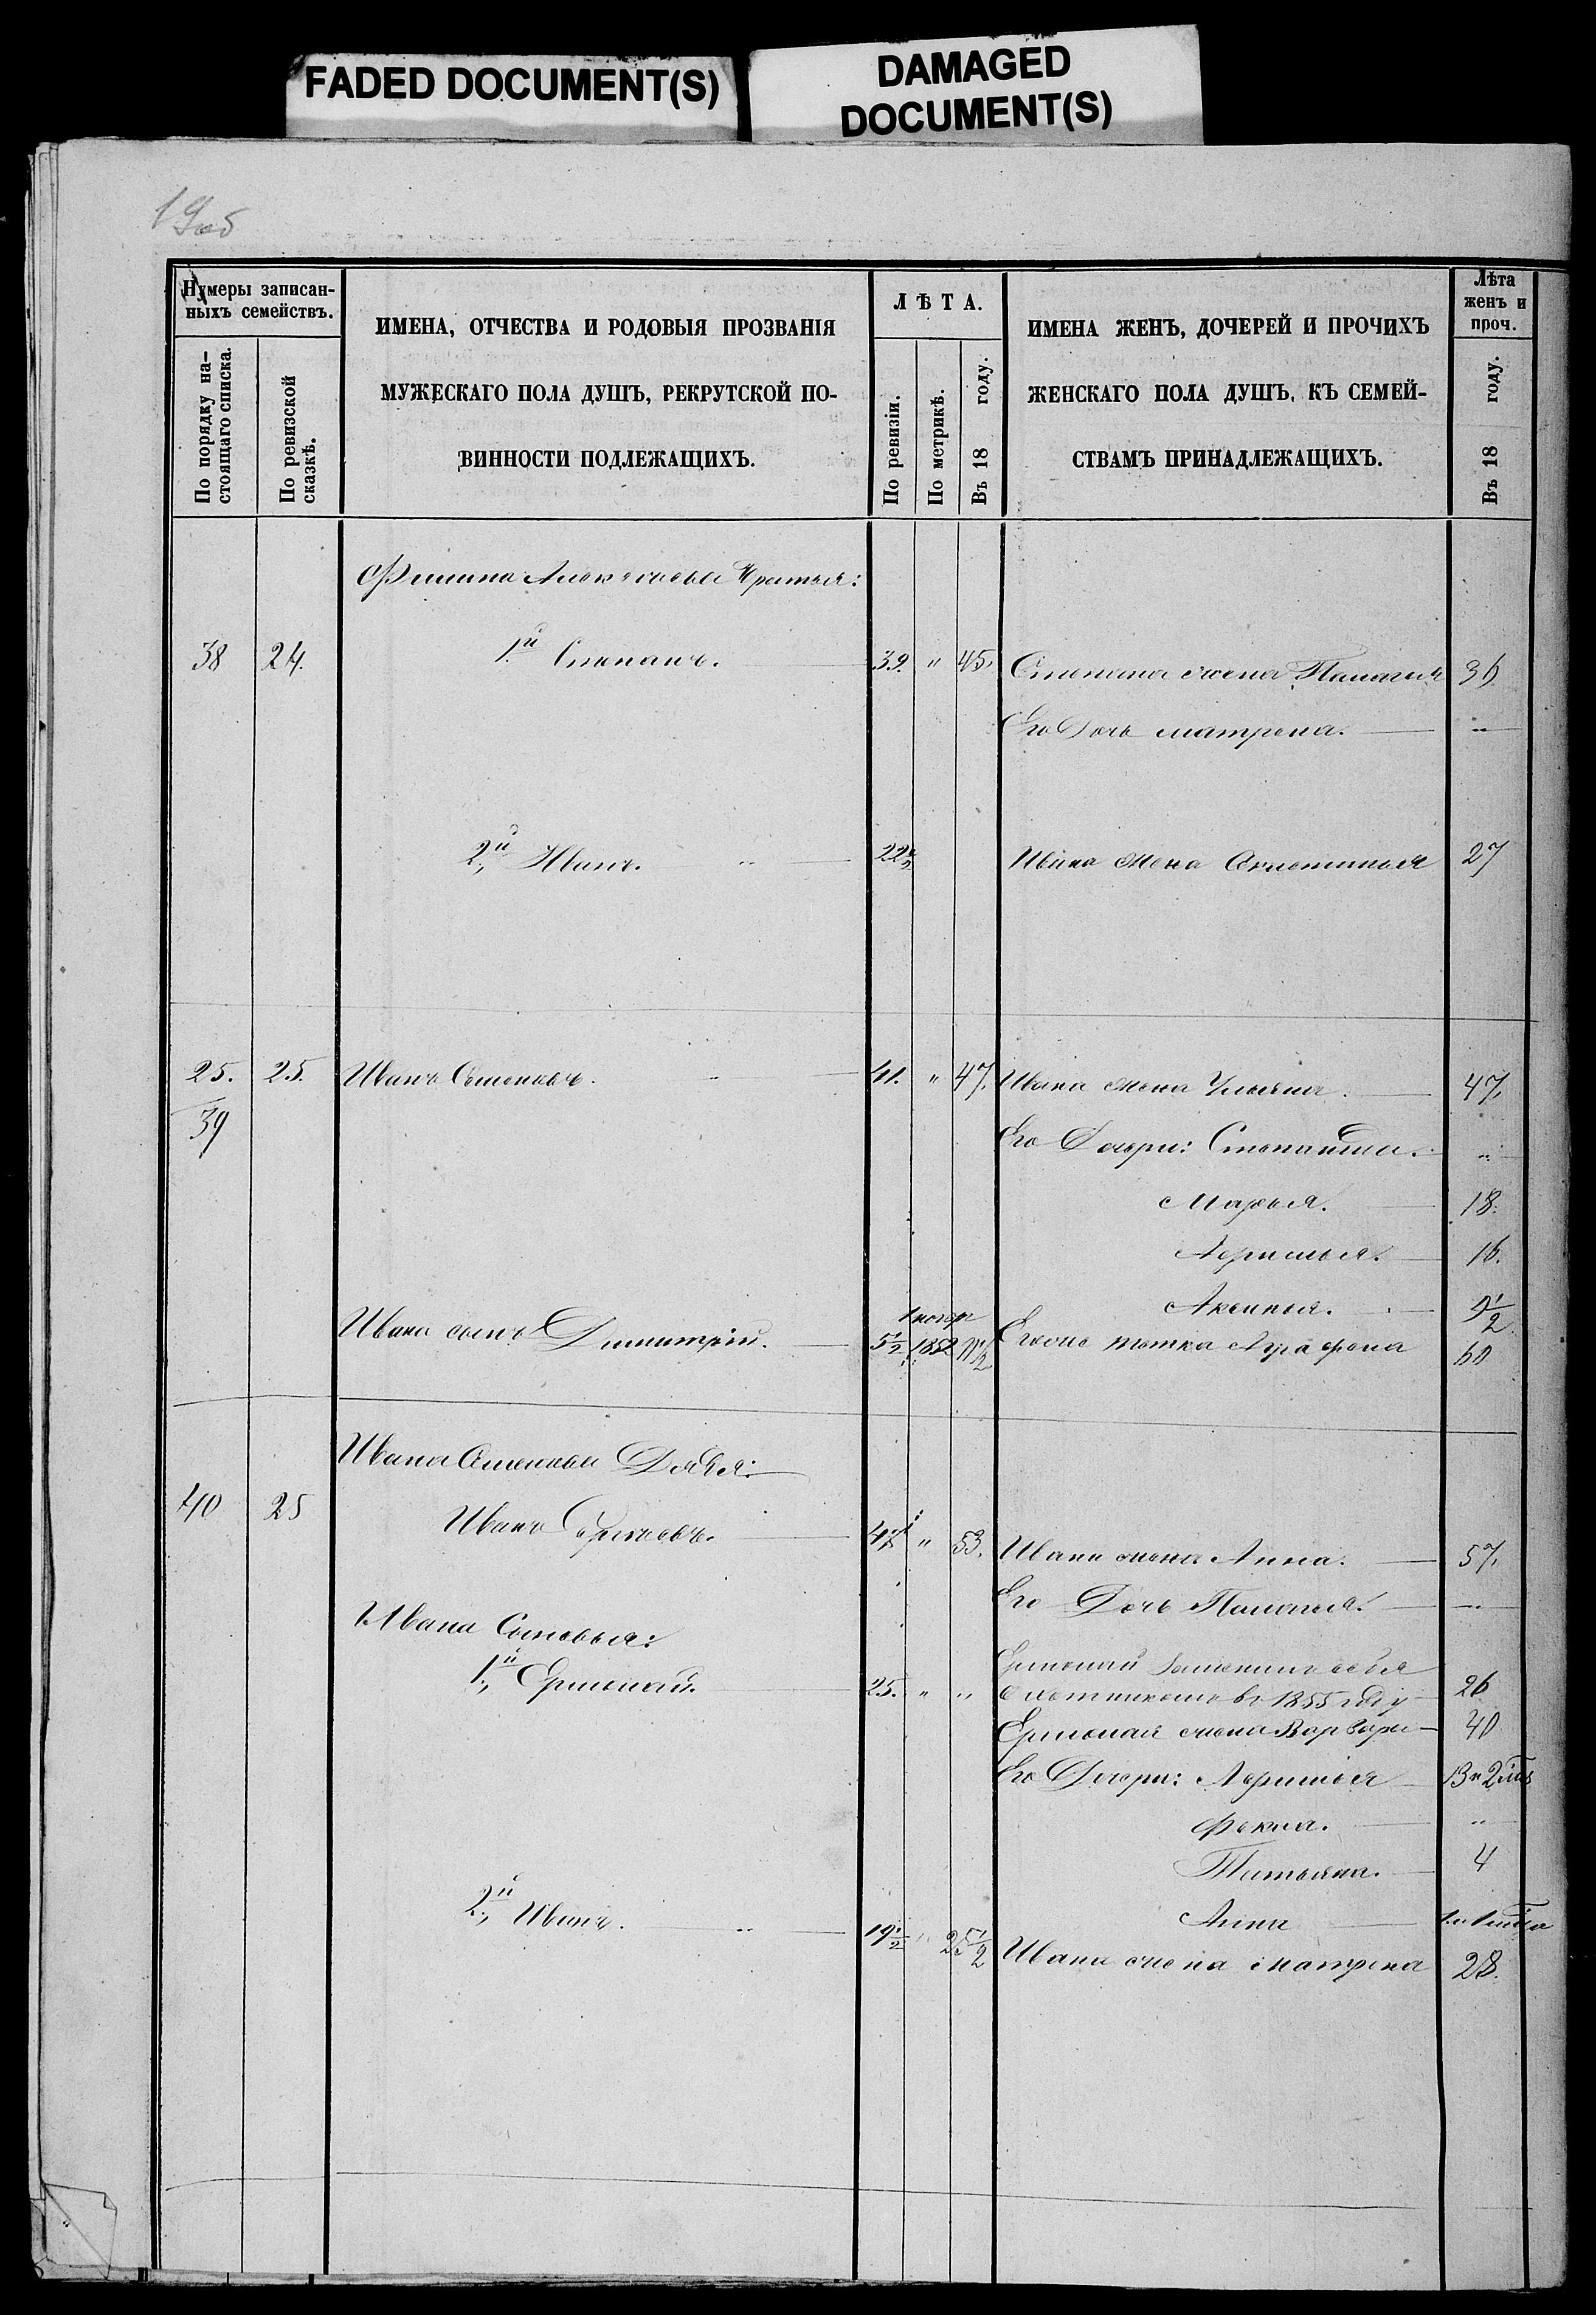 FADED DOCUMENT(S)
DAMAGED
DOCUMENT(S)
19об
Нумеры записан-
ныхъ семействъ.
По порядку на-
стоящаго списка.
По ревизской
сказкѣ.
ИМЕНА, ОТЧЕСТВА И РОДОВЫЯ ПРОЗВАНІЯ
МУЖЕСКАГО ПОЛА ДУШЪ, РЕКРУТСКОЙ ПО-
ВИННОСТИ ПОДЛЕЖАЩИХЪ.
ЛѢТА.
По ревизіи.
По метрикѣ.
Въ 18 году.
ИМЕНА ЖЕНЪ, ДОЧЕРЕЙ И ПРОЧИХЪ
ЖЕНСКАГО ПОЛА ДУШЪ, КЪ СЕМЕЙ-
СТВАМЪ ПРИНАДЛЕЖАЩИХЪ.
Лѣта
женъ и
проч.
Въ 18 году.
Филипа Алексѣева братья:
38 24. 1й Степанъ. 39. " 45. Степана жена Палагея 36
Его Дочь Матрена. "
2й Иванъ. " 22½ Ивана жена 27
25. 25. Иванъ Семеновъ. " 41. " 47. Ивана жена Ульяна. 47.
39
Его Дочери: Степанида. "
Марья. 18.
Лукерья 16.
Аксинья. 9½
Ивана сынъ Димитрій. 5½ 1852 11½ тетка Аграфена 60
Ивана Семенова Дядя:
40 25 Иванъ 47 " 53. Ивана жена Анна. 57.
Его Дочь Палагея. "
Ивана Сыновья:
1й Ермолай. 25. " " Ермолай
въ 1855 году 26
Ермолая жена Варвара 40
Его Дочери: 13 и 2 мѣс
Фекла. "
Татьяна. 4
Анна
2й Иванъ. " 19½ " 25½ Ивана жена Матрена 28.